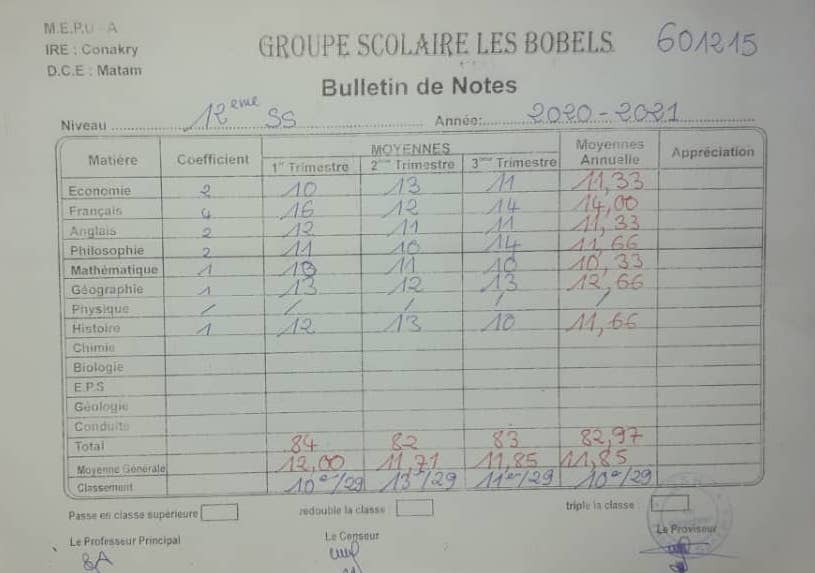 M.E.P.U - A
IRE : Conakry
D.C.E : Matam
GROUPE SCOLAIRE LES BOBELS 601215
Bulletin de Notes
Niveau 12ème SS Année: 2020-2021
Matière Coefficient MOYENNES Moyennes Annuelle Appréciation
1er Trimestre 2ème Trimestre 3ème Trimestre
Economie 2 10 13 11 11,33
Français 4 16 12 14 14,00
Anglais 2 12 11 11 11,33
Philosophie 2 11 10 14 11,66
Mathématique 1 10 11 10 10,33
Géographie 1 13 12 13 12,66
Physique / / / / /
Histoire 1 12 13 10 11,66
Chimie
Biologie
E.P.S
Géologie
Conduite
Total 84 82 83 82,97
Moyenne Générale 12,00 11,71 11,85 11,85
Classement 10e/29 13e/29 11er/29 10e/29
Passe en classe supérieure redouble la classe triple la classe
Le Professeur Principal Le Censeur Le Proviseur